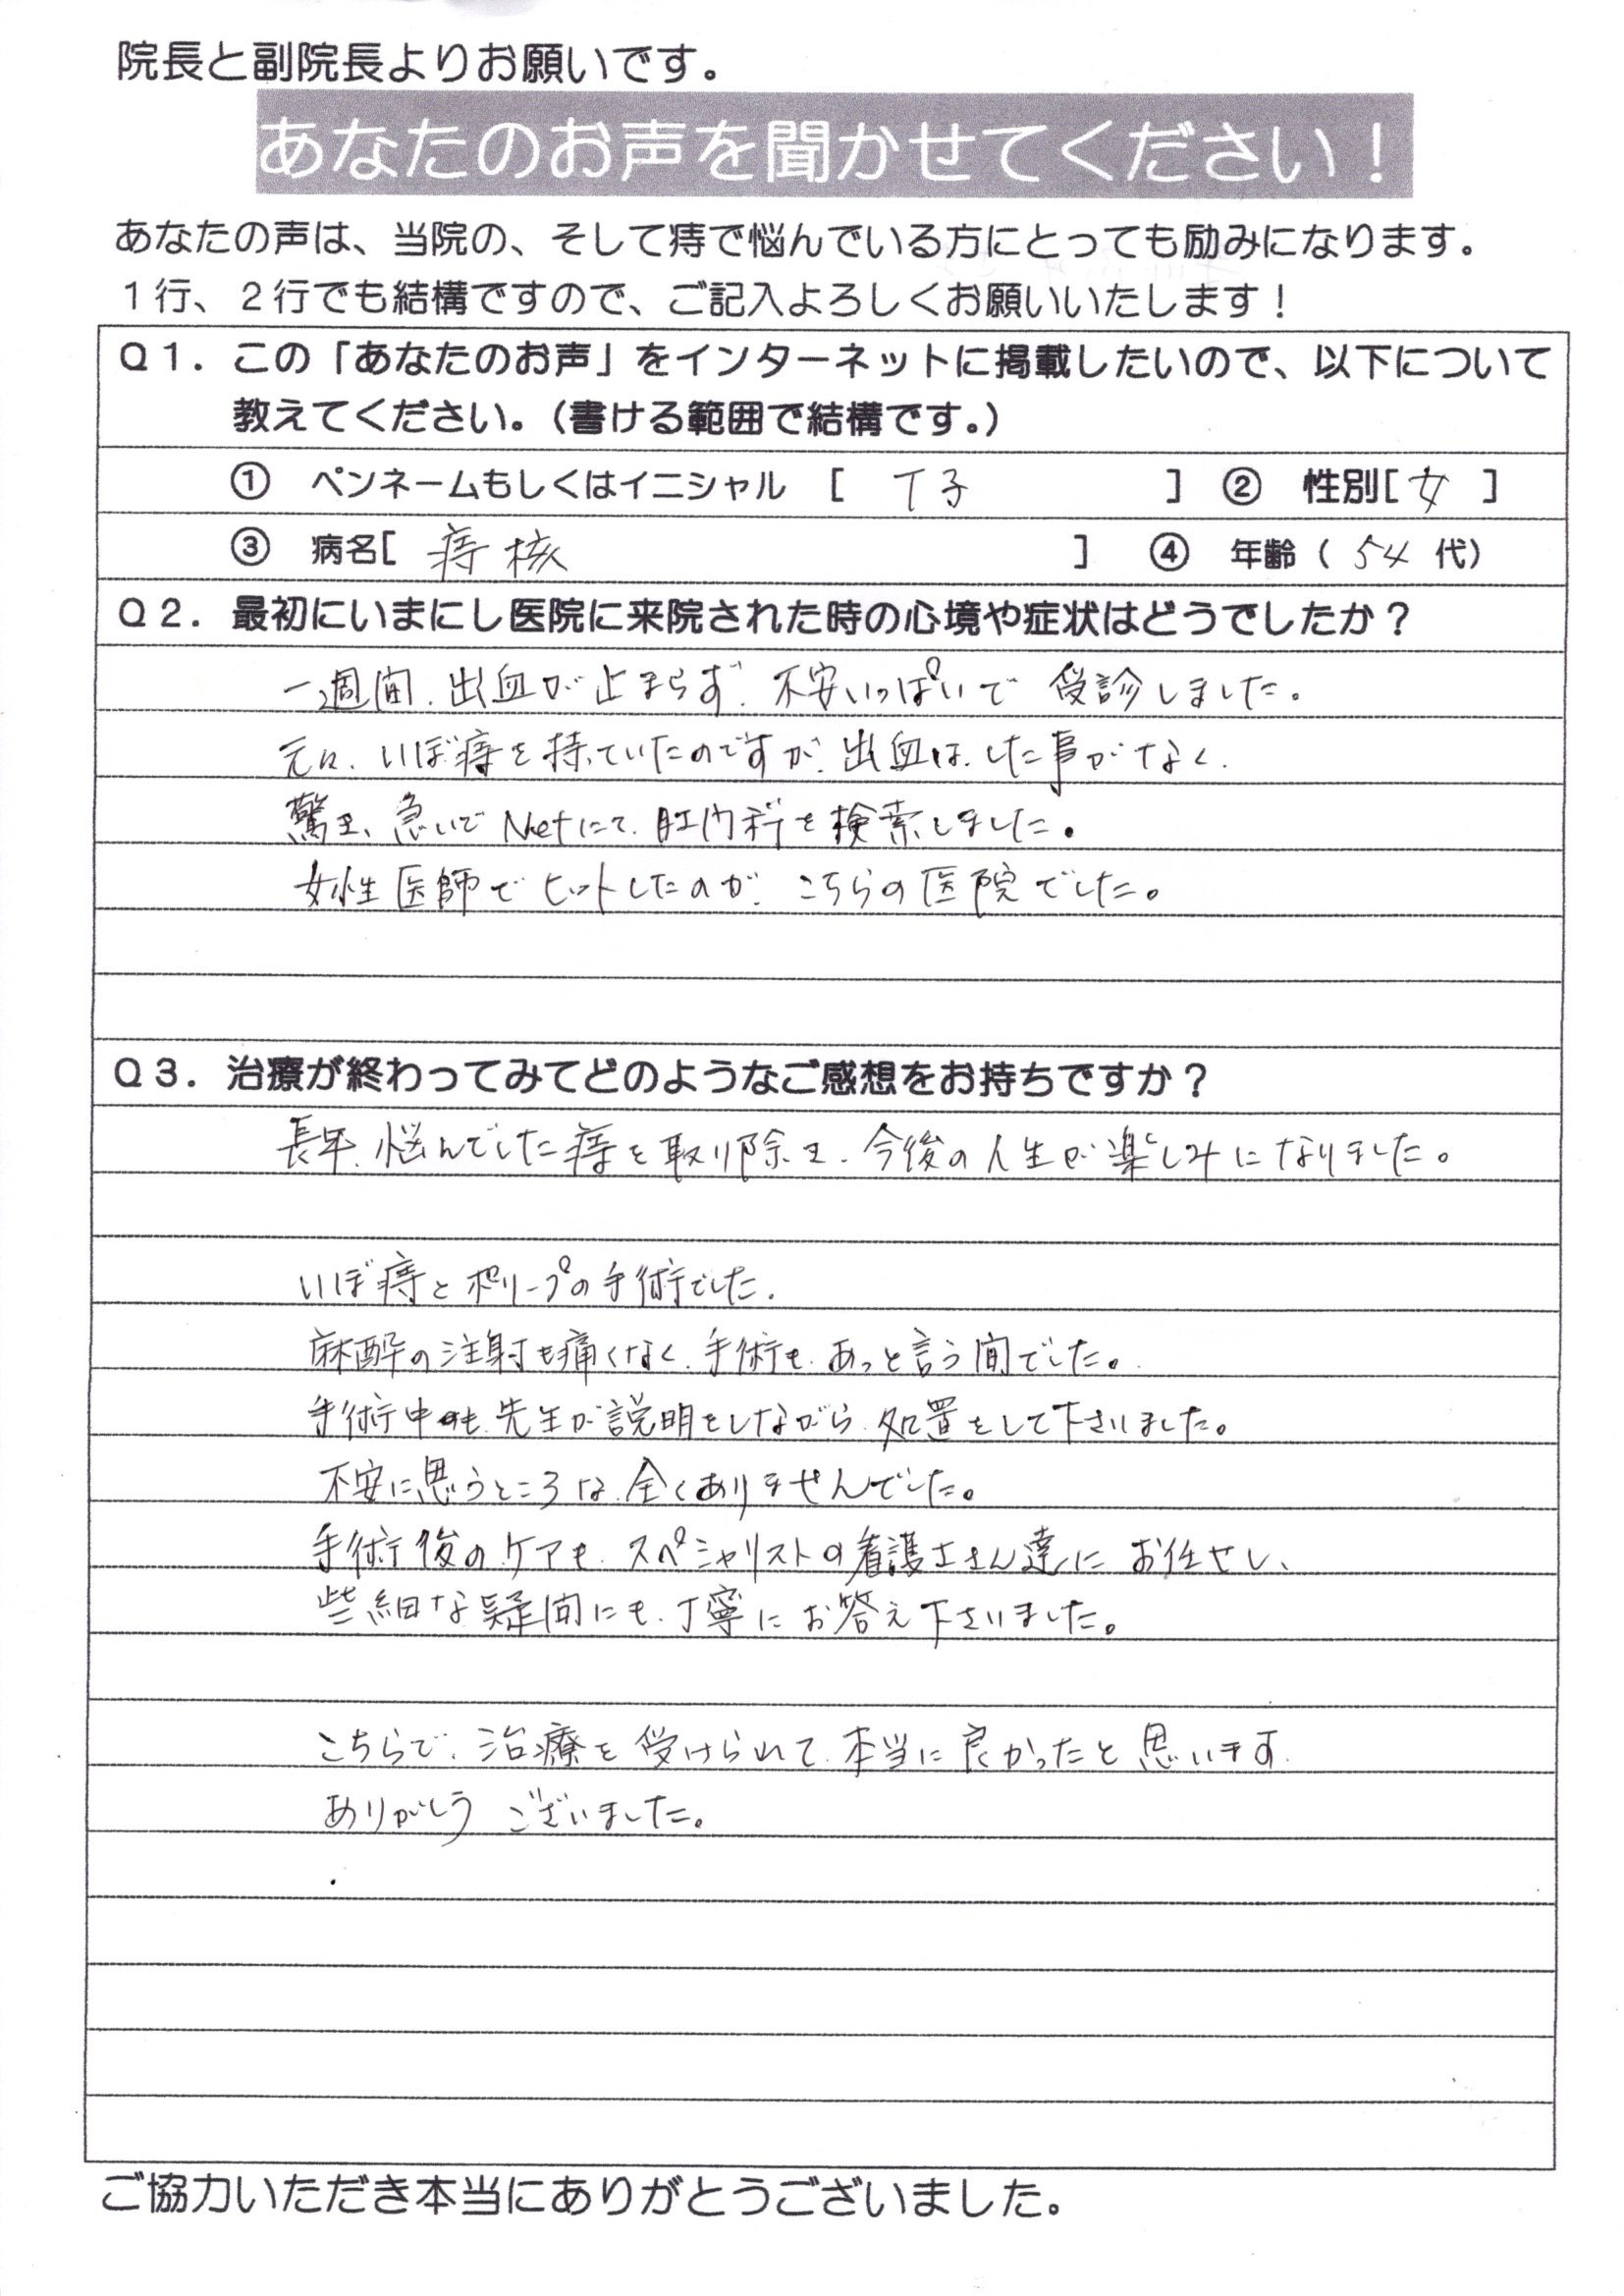 院長と副院長よりお願いです。
あなたのお声を聞かせてください！
あなたの声は、当院の、そして痔で悩んでいる方にとっても励みになります。
１行、２行でも結構ですので、ご記入よろしくお願いいたします！
Ｑ１．この「あなたのお声」をインターネットに掲載したいので、以下について
教えてください。（書ける範囲で結構です。）
① ペンネームもしくはイニシャル ［ T子 ］ ② 性別［女 ］
③ 病名［ 痔核 ］ ④ 年齢（ 54 代）
Ｑ２．最初にいまにし医院に来院された時の心境や症状はどうでしたか？
一週間、出血が止まらず、不安いっぱいで 受診しました。
元々、いぼ痔を持っていたのですが、出血は、した事がなく、
驚き、急いでNetにて、肛門科を検索しました。
女性医師でヒットしたのが、こちらの医院でした。
Ｑ３．治療が終わってみてどのようなご感想をお持ちですか？
長年、悩んでした痔を取り除き、今後の人生が楽しみになりました。
いぼ痔とポリープの手術でした。
麻酔の注射も痛くなく、手術も、あっと言う間でした。
手術中も、先生が説明をしながら、処置をして下さいました。
不安に思うところは、全くありませんでした。
手術後のケアも、スペシャリストの看護士さん達に お任せし、
些細な疑問にも、丁寧にお答え下さいました。
こちらで、治療を受けられて、本当に良かったと思います。
ありがとう ございました。
ご協力いただき本当にありがとうございました。